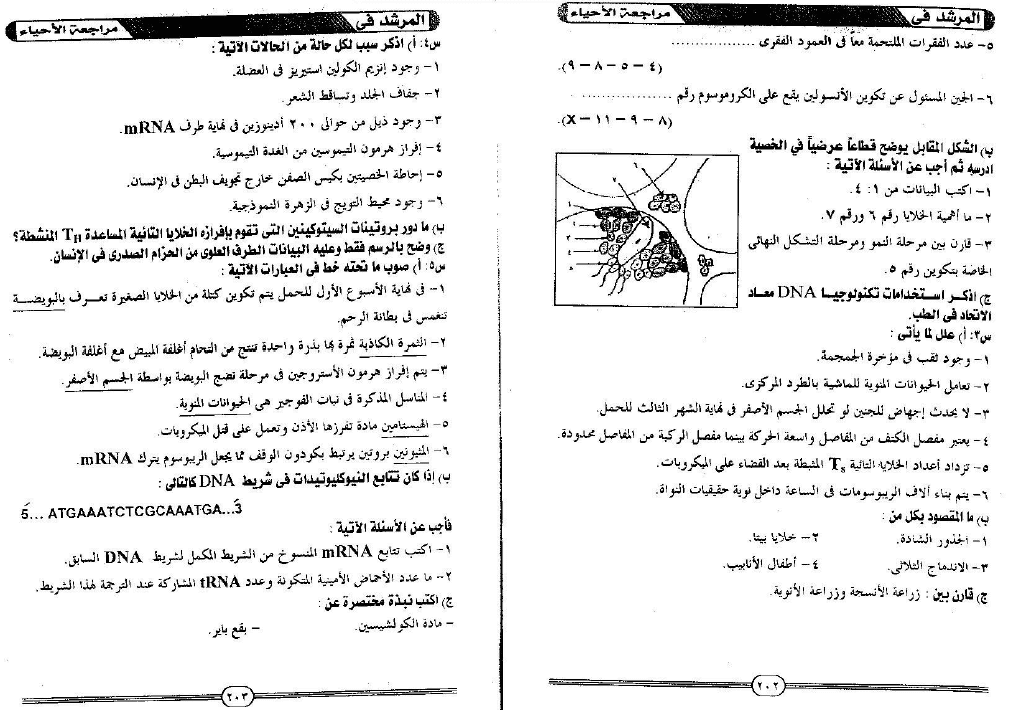 المرشد فى مراجعة الأحياء
٥- عدد الفقرات الملتحمة معاً فى العمود الفقرى ..................
(٤ – ٥ – ٨ – ٩).
٦- الجين المسئول عن تكوين الأنسولين يقع على الكروموسوم رقم ..................
(٨ – ٩ – ١١ – X).
ب) الشكل المقابل يوضح قطاعاً عرضياً في الخصية
ادرسه ثم أجب عن الأسئلة الآتية :
١- اكتب البيانات من ١ : ٤.
٢- ما أهمية الخلايا رقم ٦ ورقم ٧.
٣- قارن بين مرحلة النمو ومرحلة التشكل النهائى
الخاصة بتكوين رقم ٥.
ج) اذكر استخدامات تكنولوجيا DNA معاد
الاتحاد فى الطب.
س٣: أ) علل لما يأتى :
١- وجود ثقب فى مؤخرة الجمجمة.
٢- تعامل الحيوانات المنوية للماشية بالطرد المركزى.
٣- لا يحدث إجهاض للجنين لو تحلل الجسم الأصفر فى نهاية الشهر الثالث للحمل.
٤- يعتبر مفصل الكتف من المفاصل واسعة الحركة بينما مفصل الركبة من المفاصل محدودة.
٥- تزداد أعداد الخلايا التائية Ts المثبطة بعد القضاء على الميكروبات.
٦- يتم بناء ألاف الريبوسومات فى الساعة داخل نوية حقيقيات النواة.
ب) ما المقصود بكل من :
١- الجذور الشادة. ٢- خلايا بيتا.
٣- الاندماج الثلاثى. ٤- أطفال الأنابيب.
ج) قارن بين : زراعة الأنسجة وزراعة الأنوية.
٢٠٢
المرشد فى مراجعة الأحياء
س٤: أ) اذكر سبب لكل حالة من الحالات الآتية :
١- وجود إنزيم الكولين استيريز فى العضلة.
٢- جفاف الجلد وتساقط الشعر.
٣- وجود ذيل من حوالى ٢٠٠ أدينوزين فى نهاية طرف mRNA.
٤- إفراز هرمون التيموسين من الغدة التيموسية.
٥- إحاطة الخصيتين بكيس الصفن خارج تجويف البطن فى الإنسان.
٦- وجود محيط التويج فى الزهرة النموذجية.
ب) ما دور بروتينات السيتوكينين التى تقوم بإفرازه الخلايا التائية المساعدة TH المنشطة؟
ج) وضح بالرسم فقط وعليه البيانات الطرف العلوى من الحزام الصدرى فى الإنسان.
س٥: أ) صوب ما تحته خط فى العبارات الآتية :
١- فى نهاية الأسبوع الأول للحمل يتم تكوين كتلة من الخلايا الصغيرة تعرف بالبويضة
تنغمس فى بطانة الرحم.
٢- الثمرة الكاذبة ثمرة بها بذرة واحدة تنتج من التحام أغلفة المبيض مع أغلفة البويضة.
٣- يتم إفراز هرمون الأستروجين فى مرحلة نضج البويضة بواسطة الجسم الأصفر.
٤- المناسل المذكرة فى نبات الفوجير هى الحيوانات المنوية.
٥- الهيستامين مادة تفرزها الأذن وتعمل على قتل الميكروبات.
٦- المثيونين بروتين يرتبط بكودون الوقف مما يجعل الريبوسوم يترك mRNA.
ب) إذا كان تتابع النيوكليوتيدات فى شريط DNA كالتالى :
5́... ATGAAATCTCGCAAATGA...3́
فأجب عن الأسئلة الآتية :
١- اكتب تتابع mRNA المنسوخ من الشريط المكمل لشريط DNA السابق.
٢- ما عدد الأحماض الأمينية المتكونة وعدد tRNA المشاركة عند الترجمة لهذا الشريط.
ج) اكتب نبذة مختصرة عن :
– مادة الكولشيسين. – بقع باير.
٢٠٣